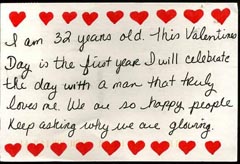 I am 32 years old. This Valentines
Day is the first year I will celebrate
the day with a man that truly
loves me. We are so happy, people
keep asking why we are glowing.